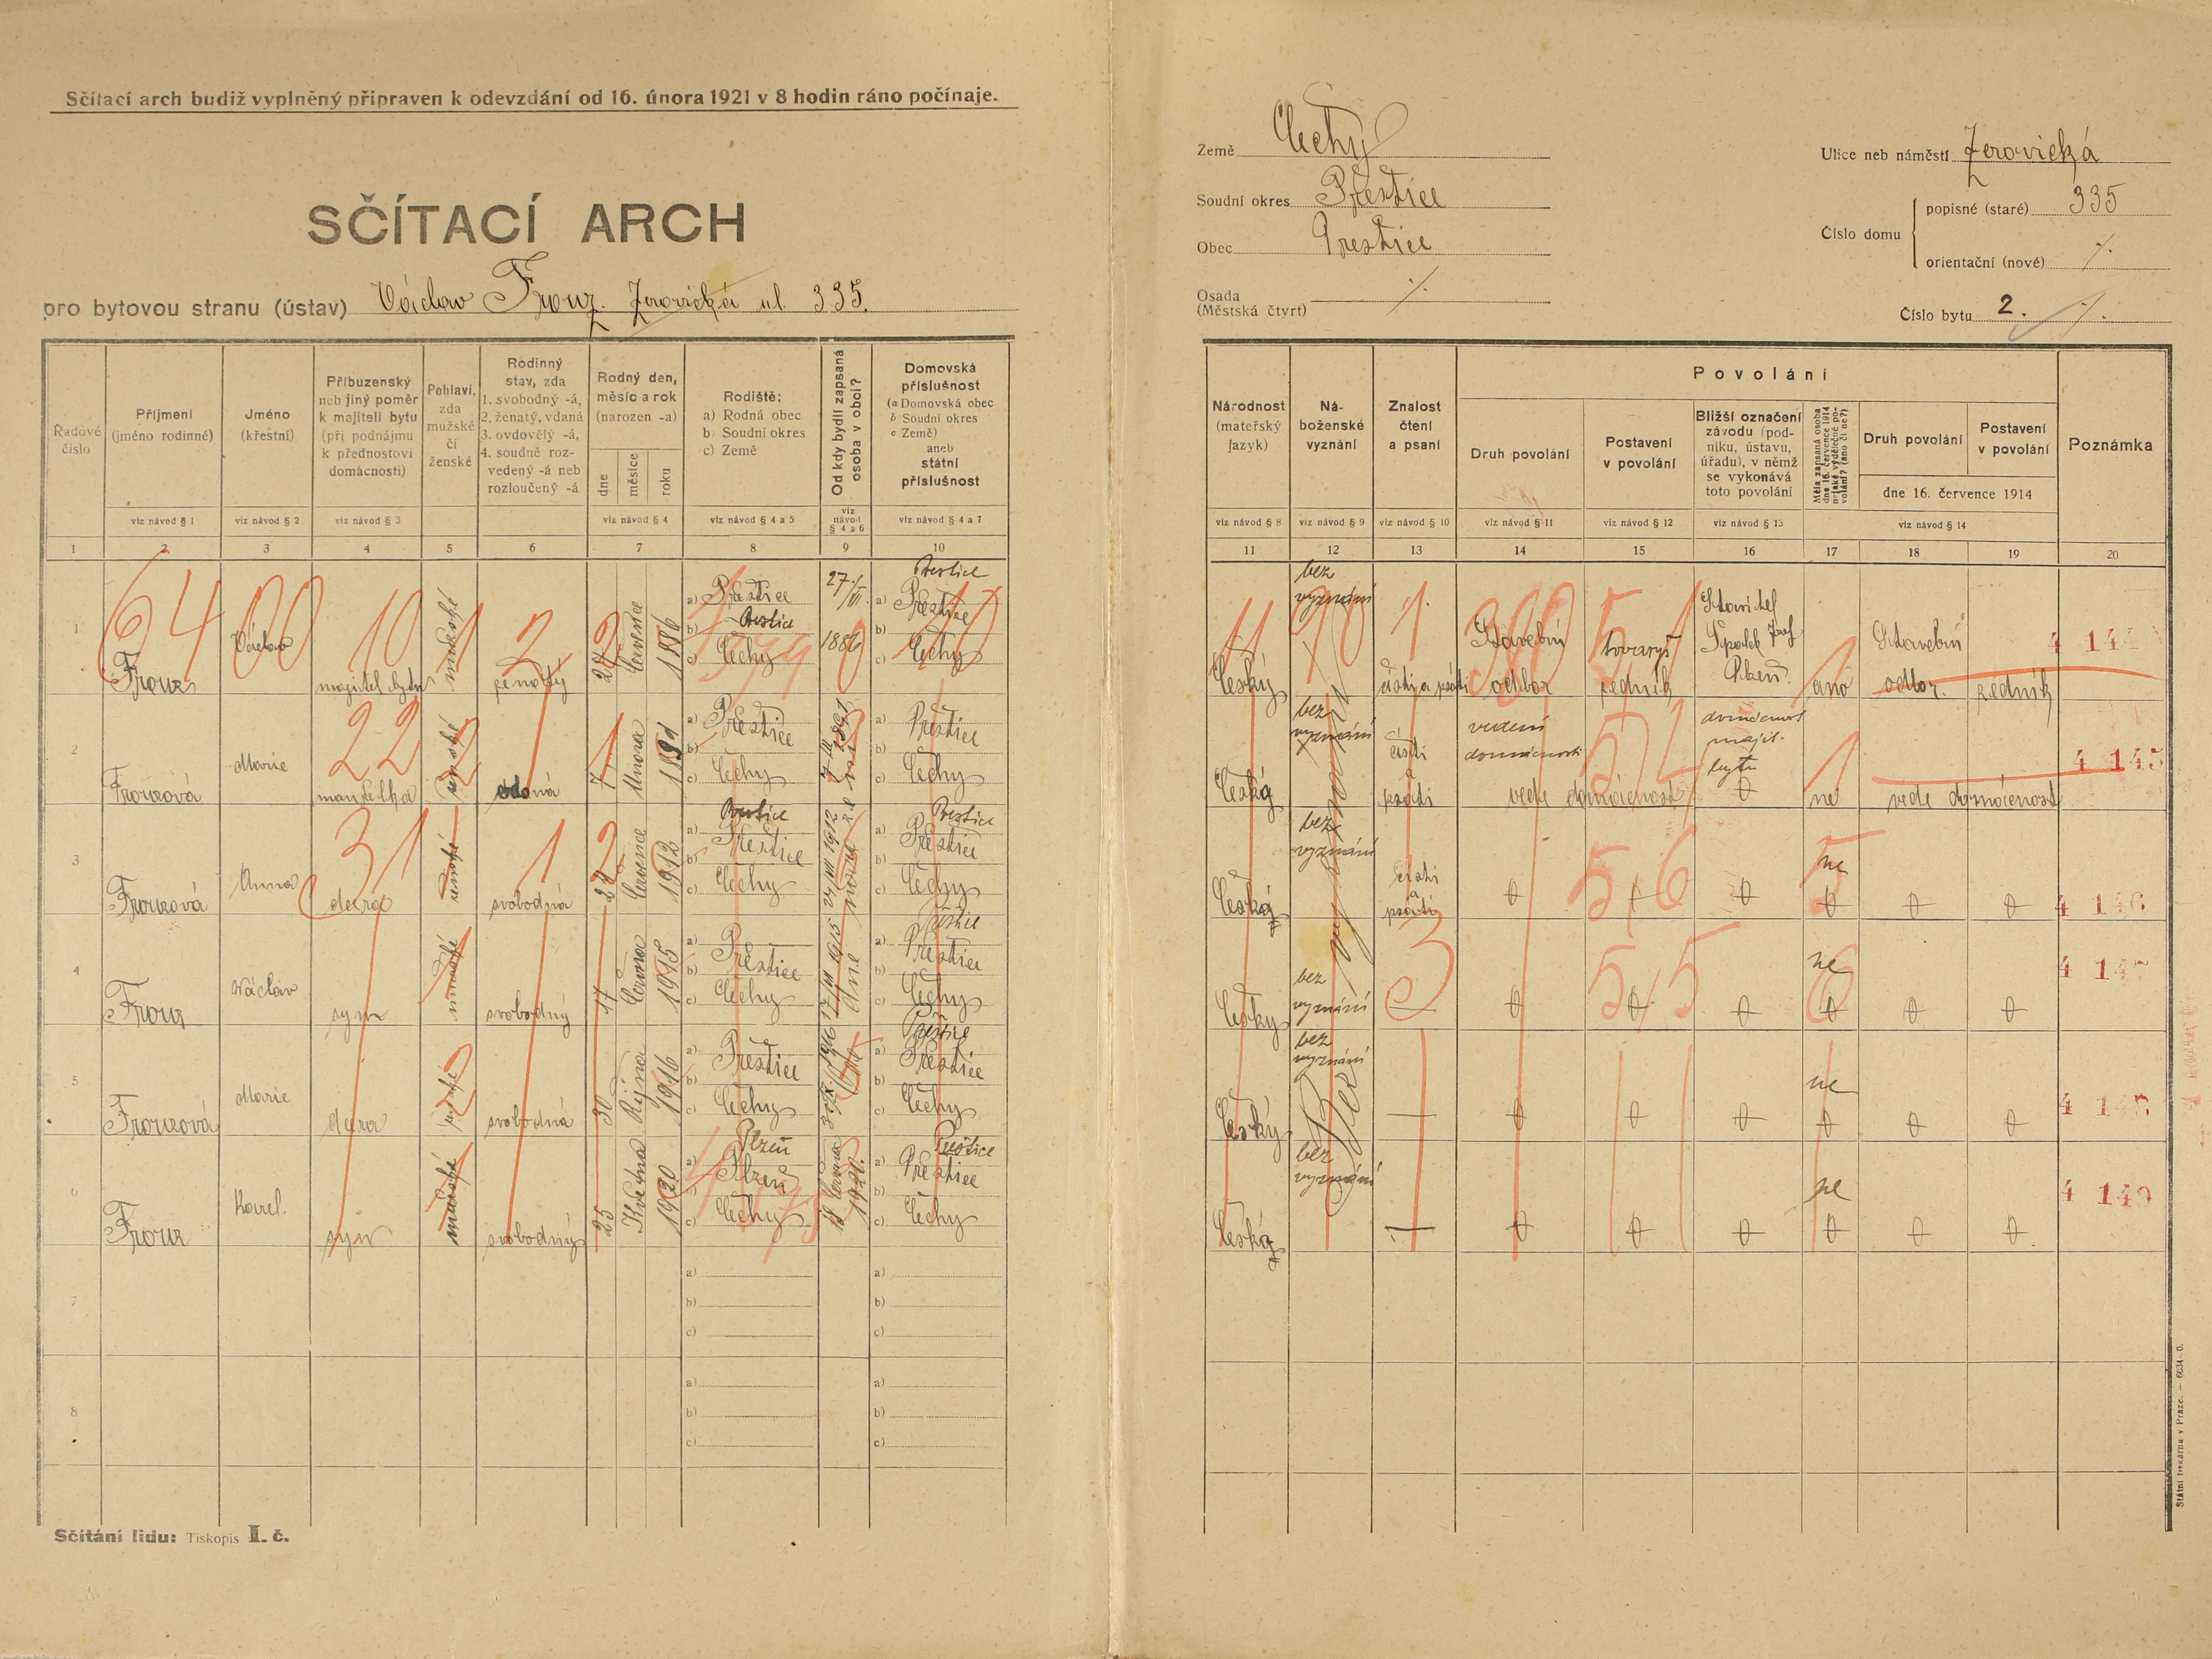 Sčítací arch budiž vyplněný připraven k odevzdání od 16. února 1921 v 8 hodin ráno počínaje.
SČÍTACÍ ARCH
pro bytovou stranu (ústav) Václav Frouz. Žerovická ul. 335.
Země Čechy
Soudní okres Přeštice
Obec Přeštice
Osada
(Městská čtvrť) ·/.
Ulice neb náměstí Žerovická
Číslo domu
popisné (staré) 335
orientační (nové) ·/.
Číslo bytu 2. ·/.
Řadové číslo
Příjmení (jméno rodinné)
Jméno (křestní)
Příbuzenský neb jiný poměr k majiteli bytu (při podnájmu k přednostovi domácnosti)
Pohlaví, zda mužské či ženské
Rodinný stav, zda 1. svobodný -á, 2. ženatý, vdaná 3. ovdovělý -á, 4. soudně rozvedený -á neb rozloučený -á
Rodný den, měsíc a rok (narozen -a)
dne měsíce roku
Rodiště:
a) Rodná obec
b) Soudní okres
c) Země
Od kdy bydlí zapsaná osoba v obci?
Domovská příslušnost
(a Domovská obec
b Soudní okres
c Země)
aneb státní příslušnost
viz návod § 1 viz návod § 2 viz návod § 3 viz návod § 4 viz návod § 4 a 5 viz návod § 4 a 6 viz návod § 4 a 7
1 2 3 4 5 6 7 8 9 10
Národnost (mateřský jazyk)
Náboženské vyznání
Znalost čtení a psaní
Povolání
Druh povolání
Postavení v povolání
Bližší označení závodu (podniku, ústavu, úřadu), v němž se vykonává toto povolání
Měla zapsaná osoba dne 16. července 1914 nějaké výdělečné povolání? (ano či ne?)
Druh povolání
Postavení v povolání
dne 16. července 1914
Poznámka
viz návod § 8 viz návod § 9 viz návod § 10 viz návod § 11 viz návod § 12 viz návod § 13 viz návod § 14
11 12 13 14 15 16 17 18 19 20
1 Frouz Václav majitel bytu mužské ženatý 27 Července 1886 Přeštice Přeštice Čechy 27./III. 1886 Přeštice Přeštice Čechy
Český bez vyznání čísti a psáti Stavební odbor tovaryš zedník Stavitel Špalek Josef Plzeň. ano Stavební odbor. zedník 4 144
2 Frouzová Marie manželka ženské vdaná 7 Února 1891 Přeštice Čechy Přeštice Čechy
Česká bez vyznání čísti a psáti vedení domácnosti vede domácnost domácnost majit. bytu ne vede domácnost 4 145
3 Frouzová Anna dcera ženské svobodná Července 1912 Přeštice Přeštice Čechy Přeštice Přeštice Čechy
Česká bez vyznání čísti a psáti ne 4 146
4 Frouz Václav syn mužské svobodný 17 Června 1915 Přeštice Čechy Přeštice Přeštice Čechy
Český bez vyznání ne 4 147
5 Frouzová Marie dcera ženské svobodná 30 Října 1916 Přeštice Čechy Přeštice Přeštice Čechy
Český bez vyznání ne 4 148
6 Frouz Karel. syn mužské svobodný 25 Května 1920 Plzeň Plzeň Čechy 18 června 1920. Přeštice Přeštice Čechy
Český bez vyznání ne 4 149
Bez vyznání
7 a) b) c) a) b) c)
8 a) b) c) a) b) c)
Sčítání lidu: Tiskopis I. č.
Státní tiskárna v Praze. — 6634-0.